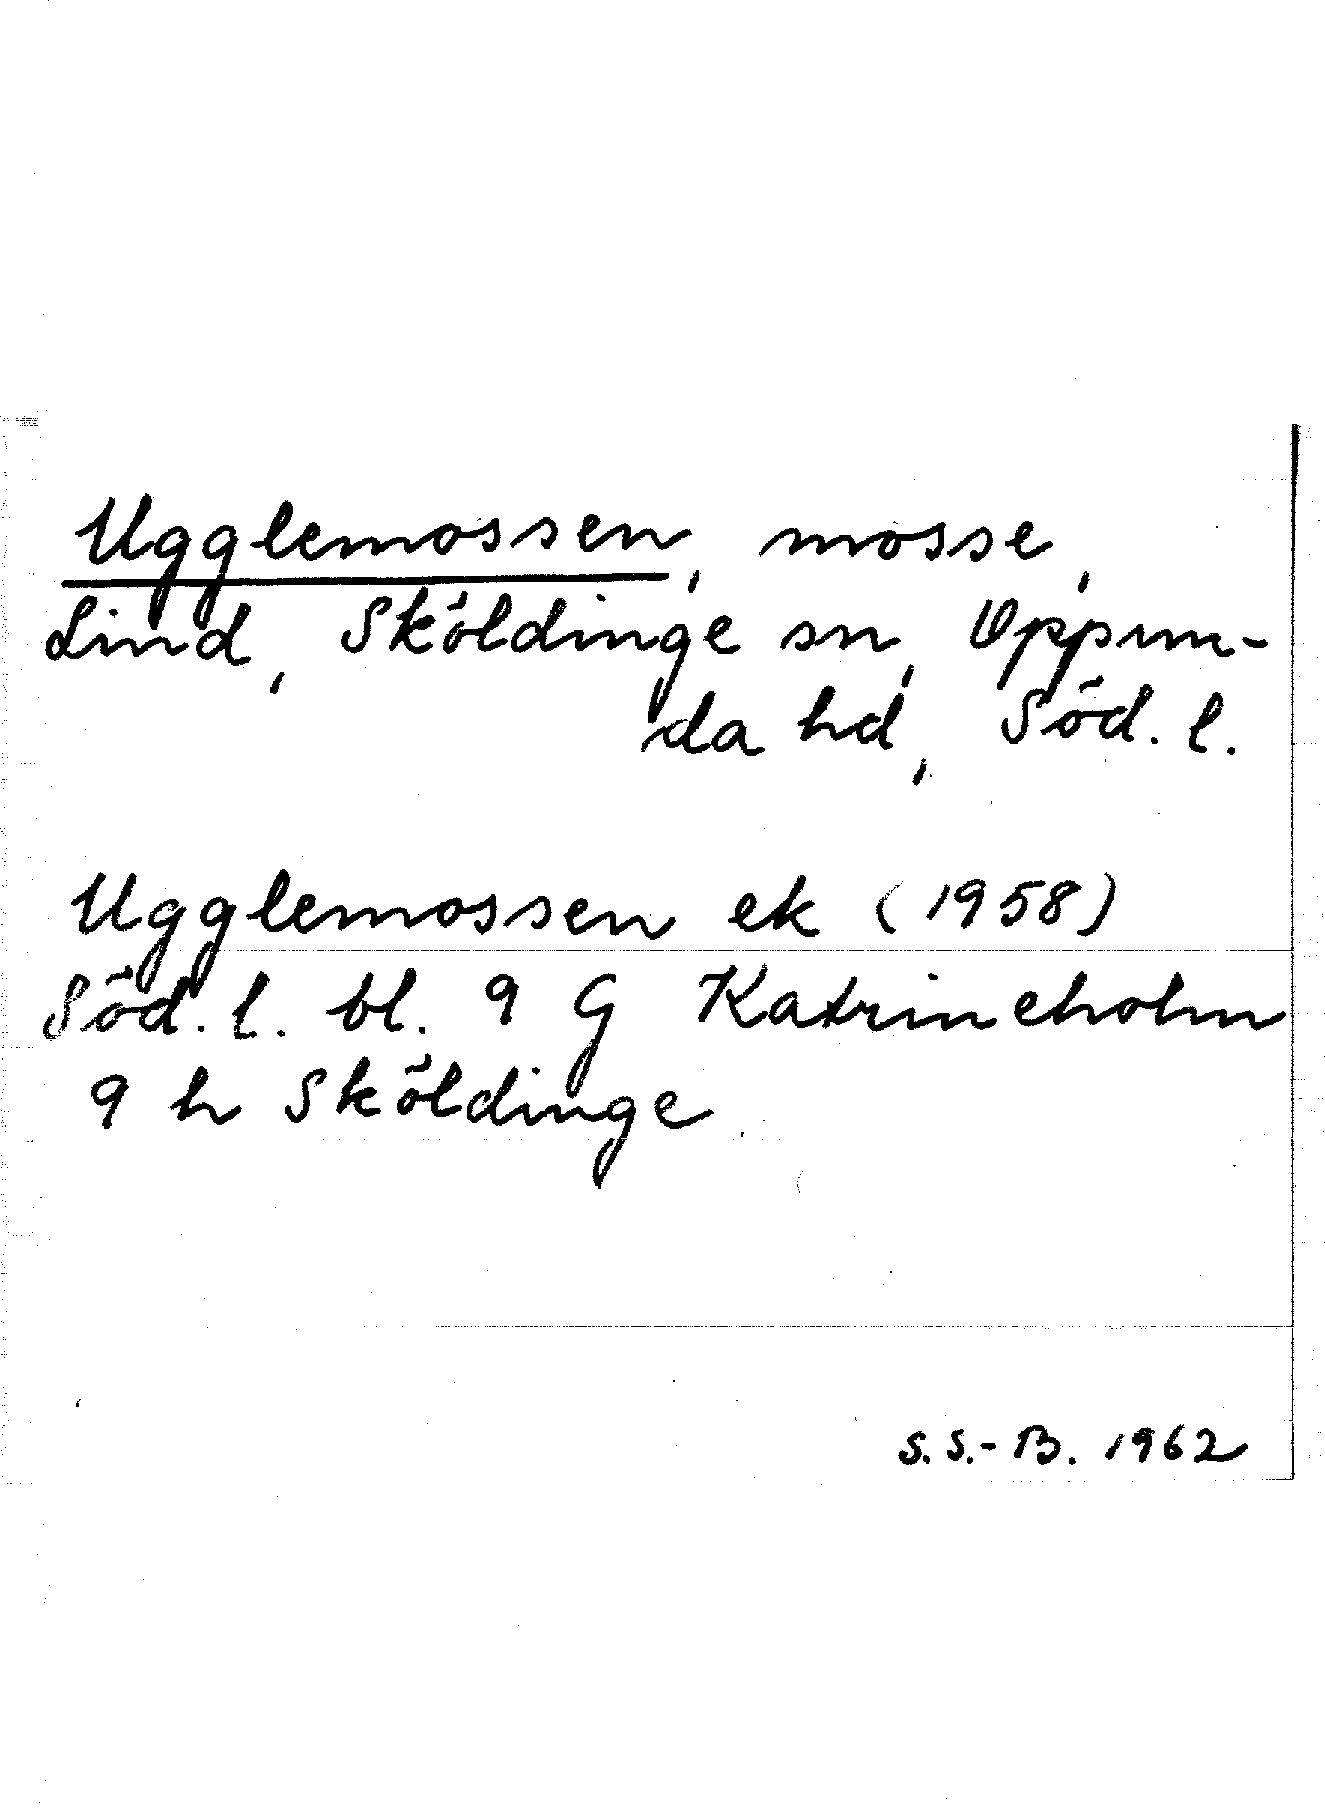 Ugglemossen, mosse,
Lind, Sköldinge sn, Oppun-
da hd, Söd. l.
Ugglemossen ek (1958)
Söd. l. bl. 9 G Katrineholm
9 h Sköldinge
S. S.-B. 1962